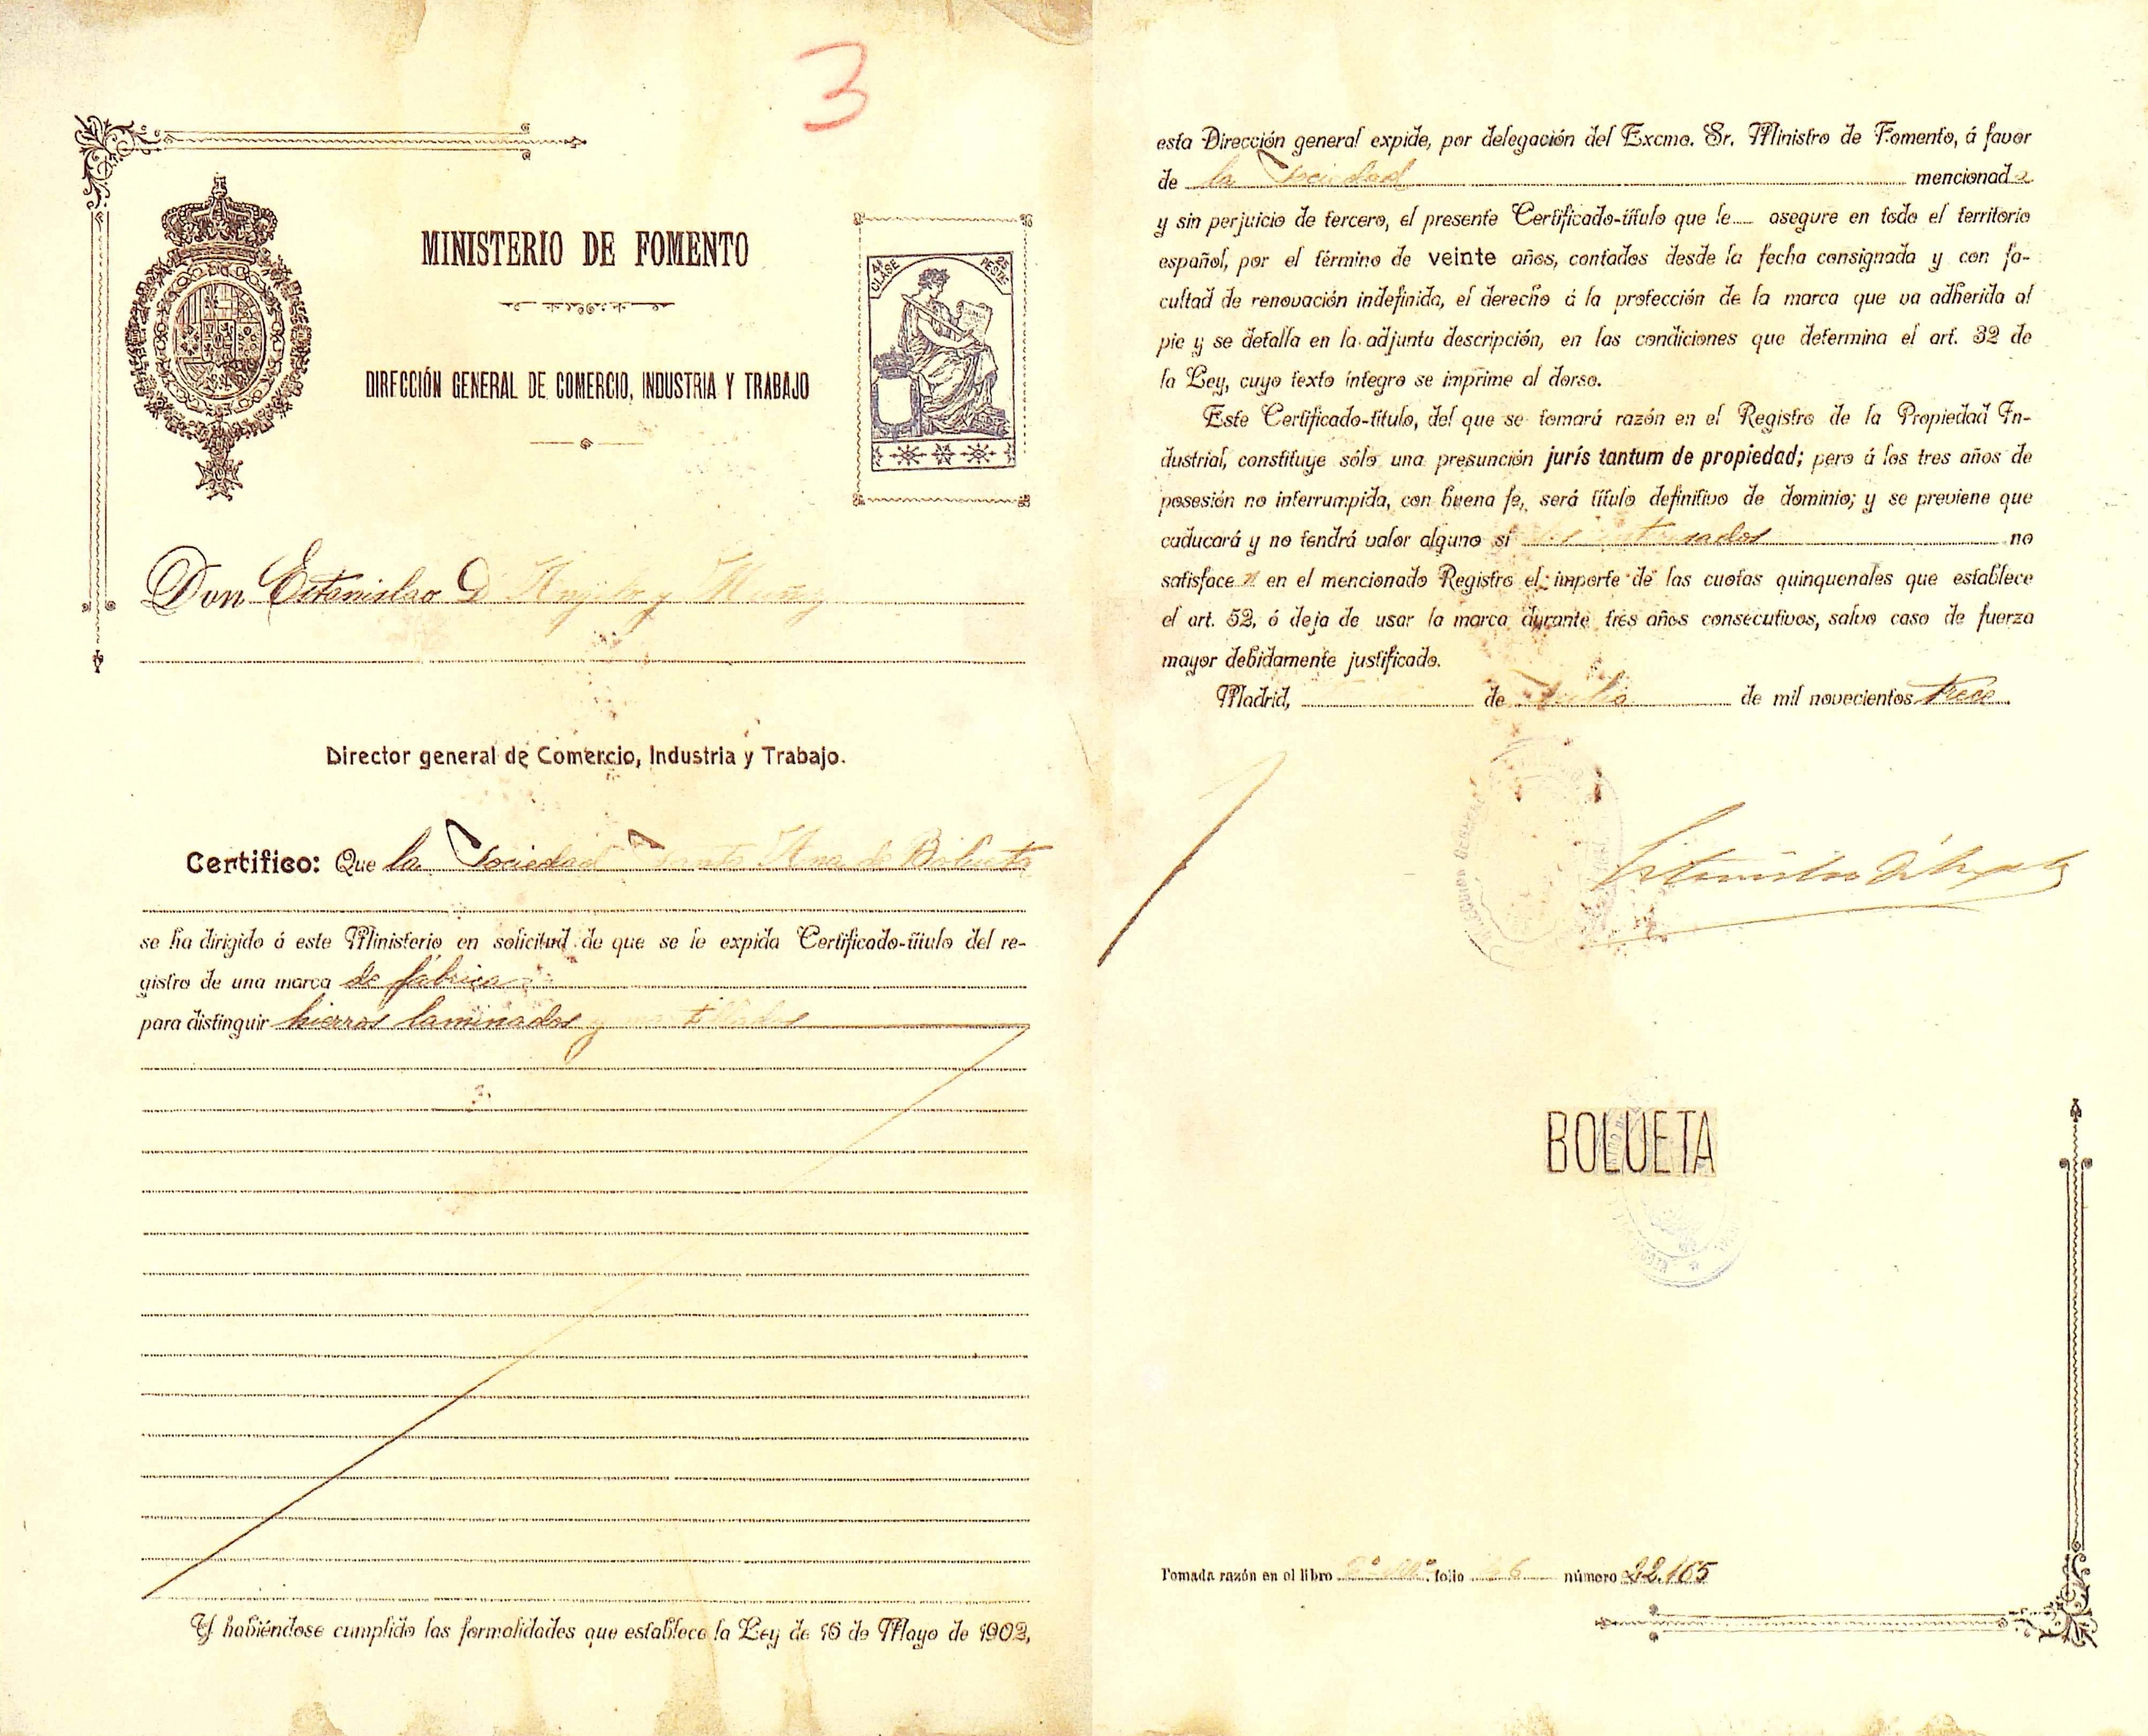 3
MINISTERIO DE FOMENTO
DIRECCIÓN GENERAL DE COMERCIO, INDUSTRIA Y TRABAJO
4ª CLASE
25 PESETAS
Don Estanislao D'Angelo y Muñoz
Director general de Comercio, Industria y Trabajo.
Certifico: Que la Sociedad Santa Ana de Bolueta
se ha dirigido á este Ministerio en solicitud de que se le expida Certificado-título del re-
gistro de una marca de fábrica
para distinguir hierros laminados y martillados
Y habiéndose cumplido las formalidades que establece la Ley de 16 de Mayo de 1902,
esta Dirección general expide, por delegación del Excmo. Sr. Ministro de Fomento, á favor
de la Sociedad mencionada
y sin perjuicio de tercero, el presente Certificado-título que le asegure en todo el territorio
español, por el término de veinte años, contados desde la fecha consignada y con fa-
cultad de renovación indefinida, el derecho á la protección de la marca que va adherida al
pie y se detalla en la adjunta descripción, en las condiciones que determina el art. 32 de
la Ley, cuyo texto íntegro se imprime al dorso.
Este Certificado-título, del que se tomará razón en el Registro de la Propiedad In-
dustrial, constituye sólo una presunción jurís tantum de propiedad; pero á los tres años de
posesión no interrumpida, con buena fe, será título definitivo de dominio; y se previene que
caducará y no tendrá valor alguno si los interesados no
satisfacen en el mencionado Registro el importe de las cuotas quinquenales que establece
el art. 52, ó deja de usar la marca durante tres años consecutivos, salvo caso de fuerza
mayor debidamente justificado.
Madrid, de Julio de mil novecientos trece
DIRECCIÓN GENERAL
Estanislao D'Angelo
BOLUETA
Tomada razón en el libro folio número 22.165